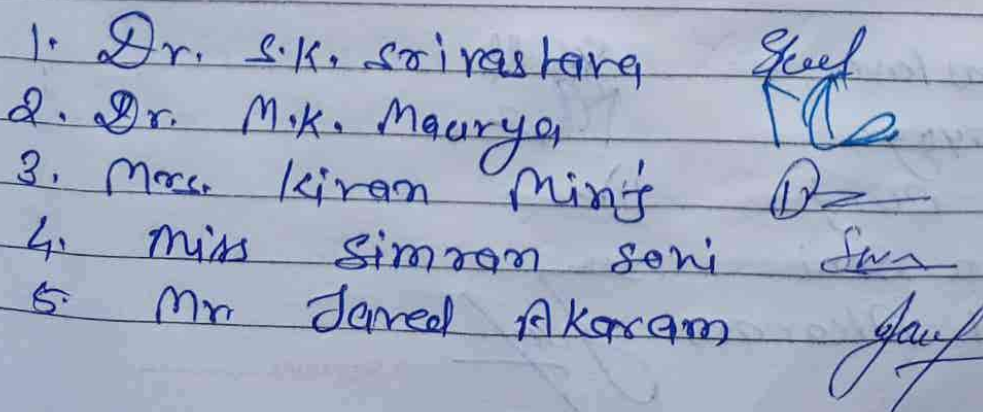 1. Dr. S.K. Srivastava
2. Dr. M.K. Maurya
3. Mrs. Kiran Minj
4. Miss Simran Soni
5. Mr Javed Akaram